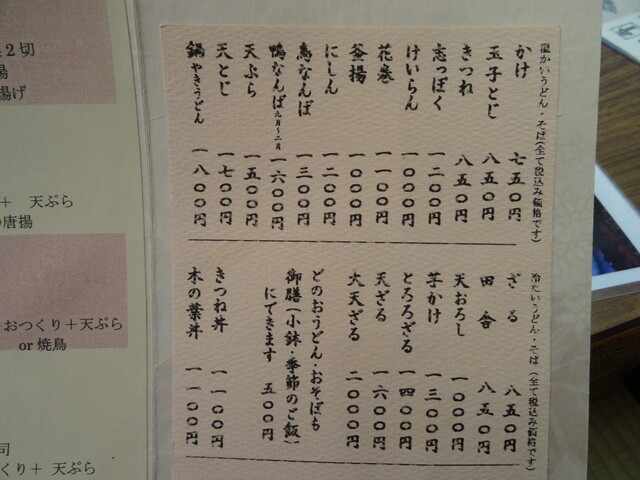 温かいうどん・そば(全て税込み価格です)
かけ 七五〇円
玉子とじ 八五〇円
きつね 八五〇円
志っぽく 一二〇〇円
けいらん 一〇〇〇円
花巻 一一〇〇円
釜揚 一〇〇〇円
にしん 一二〇〇円
鳥なんば 一三〇〇円
鴨なんば 九月~二月 一六〇〇円
天ぷら 一五〇〇円
天とじ 一七〇〇円
鍋やきうどん 一八〇〇円
冷たいうどん・そば(全て税込み価格です)
ざる 八五〇円
田舎 八五〇円
天おろし 一〇〇〇円
芋かけ 一三〇〇円
とろろざる 一四〇〇円
天ざる 一六〇〇円
大天ざる 二〇〇〇円
どのおうどん・おそばも
御膳(小鉢・季節のご飯)
にできます 五〇〇円
きつね丼 一一〇〇円
木の葉丼 一一〇〇円
2切
揚
揚げ
+ 天ぷら
の唐揚
おつくり+天ぷら
or 焼鳥
司
くり+ 天ぷら